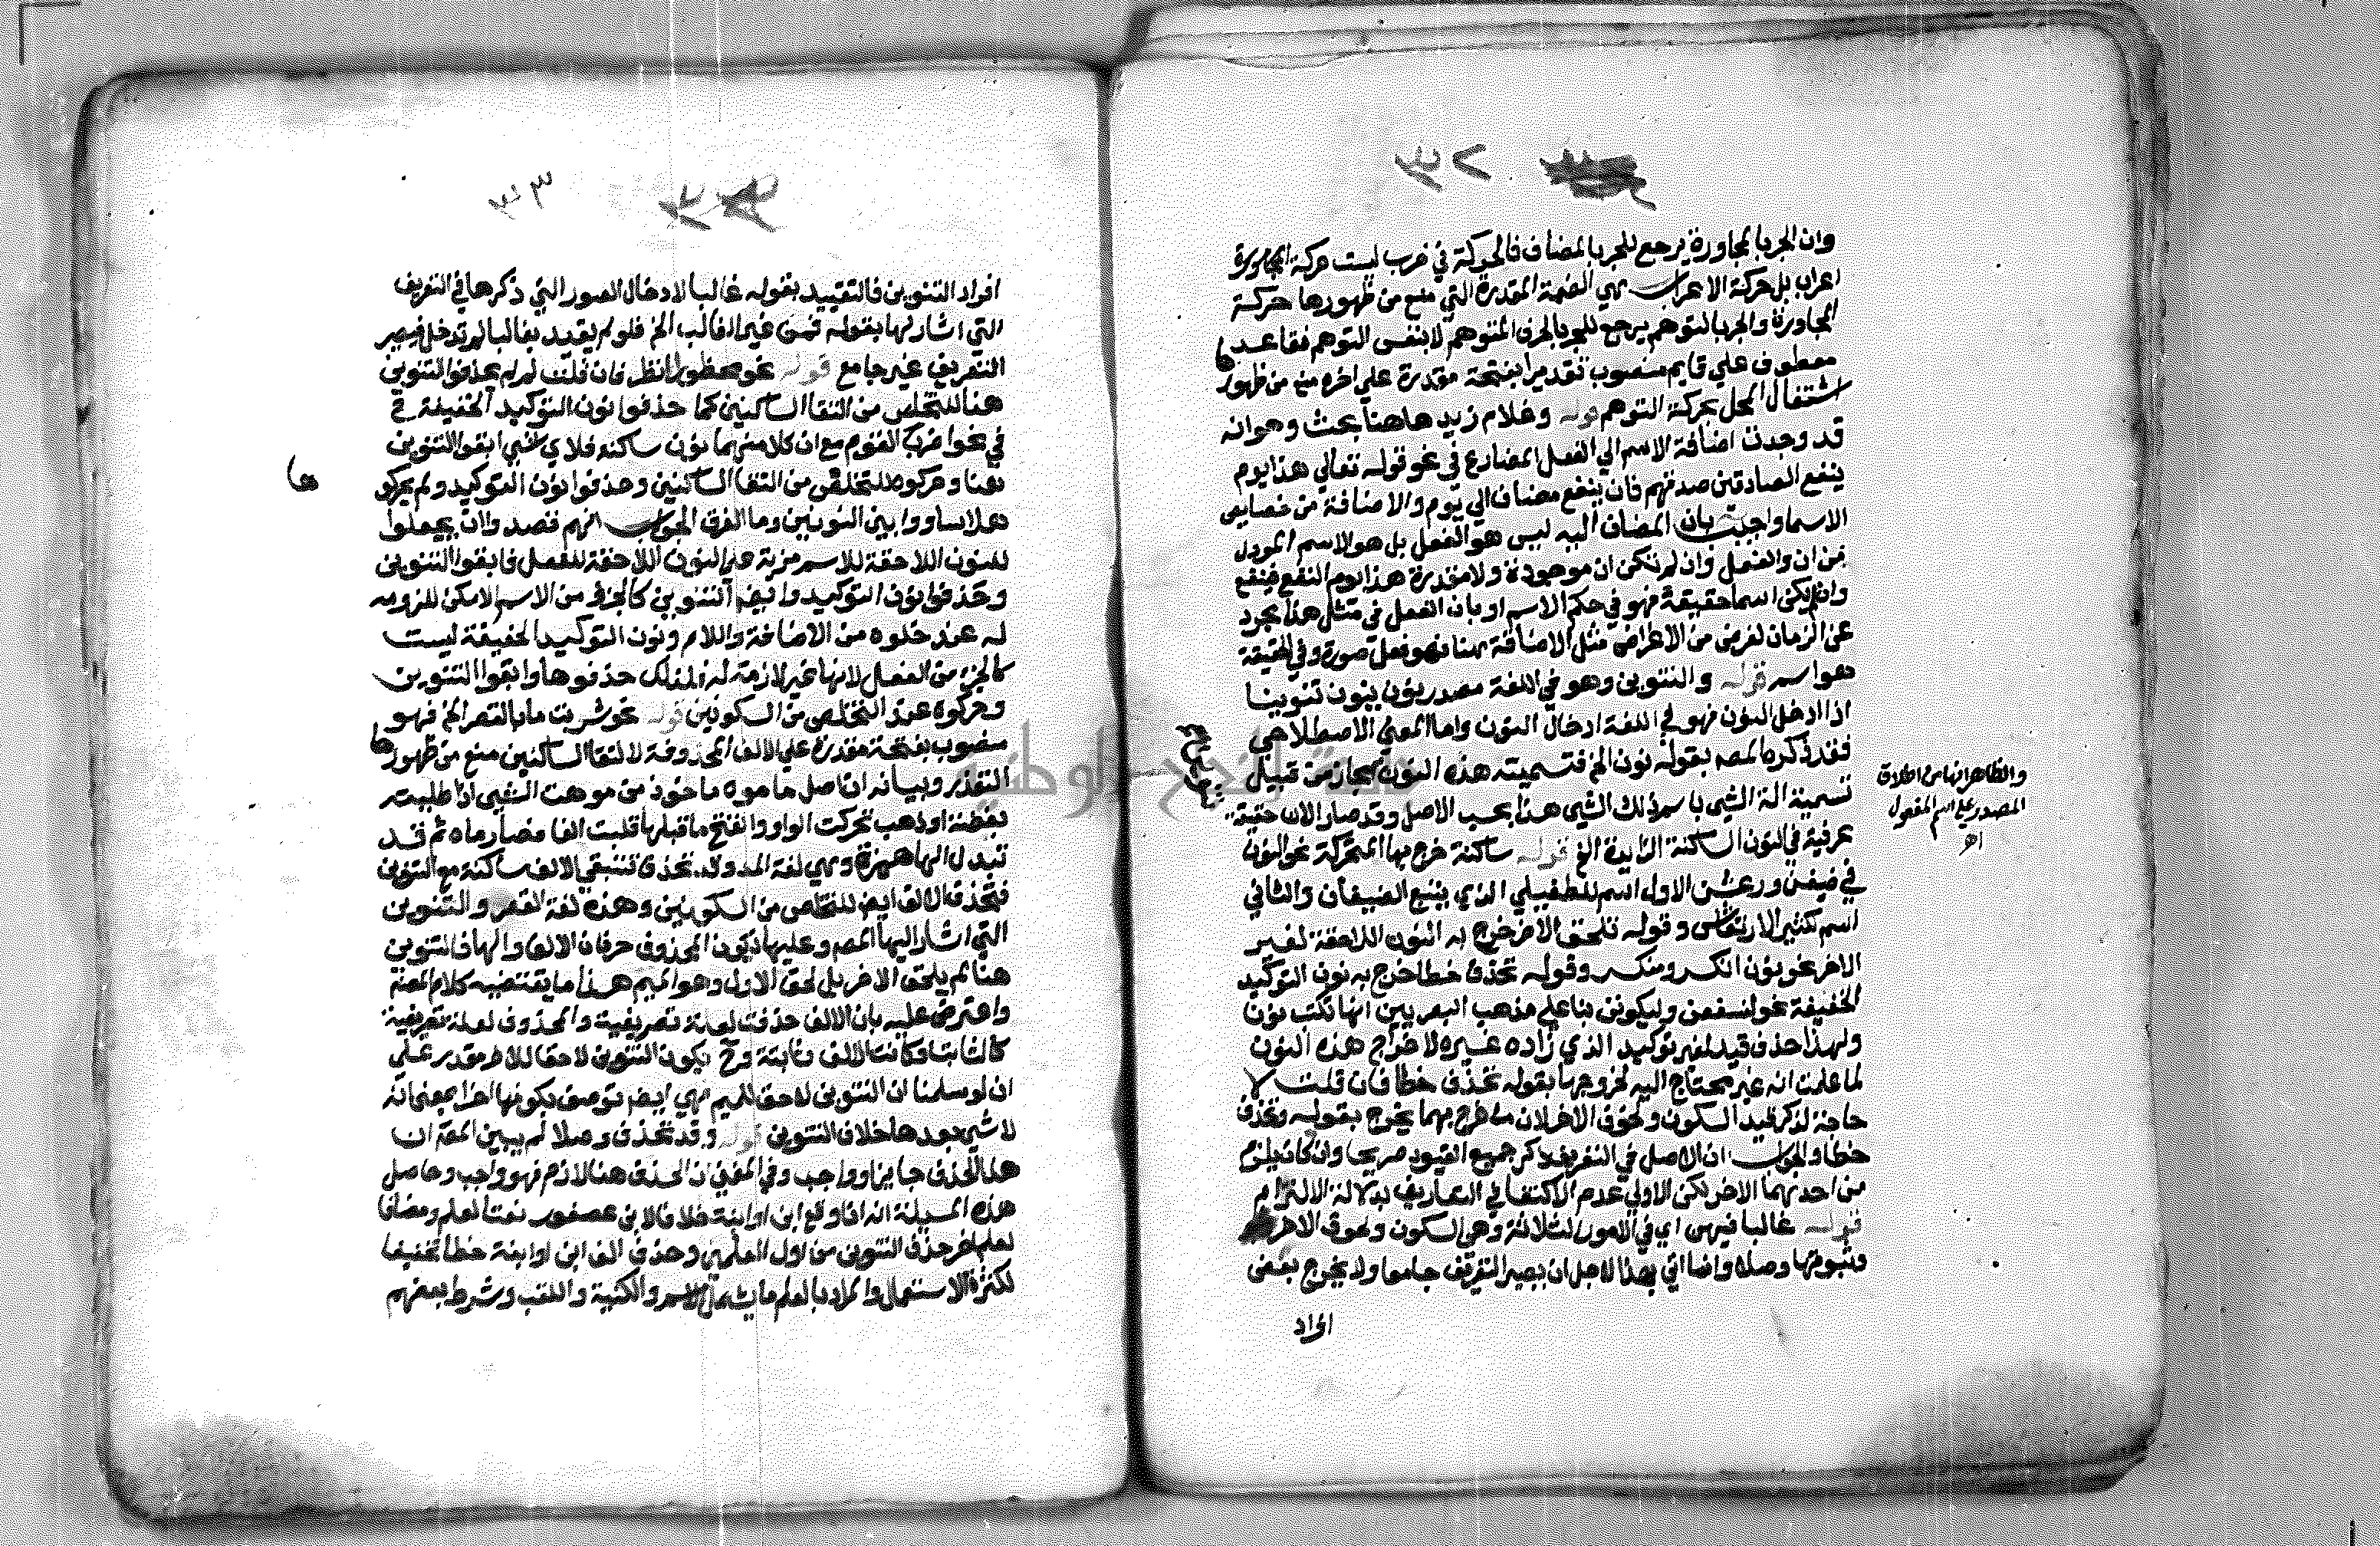 وان الجر بالمجاورة يرجع للجر بالمضاف فالحركة في خرب ليست حركة المجاورة
اعراب بل حركة الاعراب هي الضمة المقدرة التي منع من ظهورها حركة
المجاورة والجر بالتوهم يرجع للجر بالحرف المتوهم لا بنفس التوهم فقاعد
معطوف علي قايم منصوب تقديرا بفتحة مقدرة علي اخره منع من ظهورها
اشتغال المحل بحركة التوهم قوله وغلام زيد هاهنا بحث وهو انه
قد وجدت اضافة الاسم الي الفعل المضارع في نحو قوله تعالي هذا يوم
ينفع الصادقين صدقهم فان ينفع مضاف الي يوم والاضافة من خصايص
الاسما واجيب بان المضاف اليه ليس هو الفعل بل هو الاسم المودل
من ان والفعل وان لم تكن ان موجودة ولا مقدرة هذا يوم النفع فينفع
وان لم يكن اسما حقيقة فهو في حكم الاسم او بان الفعل في مثل هذا يجرد
عن الزمان لغرض من الاغراض مثل الاضافة هنا فهو فعل صورة وفي الحقيقة
هو اسم قوله والتنوين وهو في اللغة مصدر نون ينون تنوينا
اذا ادخل النون فهو في اللغة ادخال النون واما المعني الاصطلاحي
فقد ذكره المصه بقوله نون الخ فتسميته هذه النون مجاز من قبيل
تسمية الة الشي باسم ذلك الشي هذا بحسب الاصل وقد صار الان حقيقة
والظاهر انها من اطلاق
المصدر علي اسم المفعول
اهـ
عرفية في النون الساكنة الزايدة الخ قوله ساكنة خرج بها المتحركة نحو النون
في ضيفن ورعشن الاول اسم للطفيلي الذي يتبع الضيفان والثاني
اسم لكثير الارتعاش وقوله تلحق الاخر خرج به النون اللاحقة لغير
الاخر نحو نون انكسر ومنكسر وقوله تحذف خطا خرج به نون التوكيد
الخفيفة نحو لنسفعن وليكونن بنا علي مذهب البصريين انها تكتب نون
ولهذا حذف قيد لغير توكيد الذي زاده غيره لاخراج هذه النون
لما علمت انه غير محتاج اليه لخروجها بقوله تحذف خطا فان قلت لا
حاجة لذكر قيد السكون ولحوق الاخر لان ما خرج بهما يخرج بقوله وتحذف
خطا والجواب ان الاصل في التعريف ذكر جميع القيود صريحا وان كان يلزم
من احدهما الاخر لكن الاولي عدم الاكتفا في التعاريف بدلالة الالتزام
قوله غالبا فيهن اي في الامور الثلاثة وهي السكون ولحوق الاخر
وثبوتها وصلا وانما اتي بهذا لاجل ان يصير التعريف جامعا ولا يخرج بعض
افراد
افراد التنوين فالتقييد بقوله غالبا لادخال الصور التي ذكرها في التعريف
التي اشار لها بقوله فمن غير الغالب الخ فلو لم يقيد بغالبا لم تدخل فيصير
التعريف غير جامع قوله نحو محظورا انظر فان قلت لم لم يحذفوا التنوين
هنا للتخلص من التقا الساكنين كما حذفوا نون التوكيد الخفيفة في
في نحو اضرب القوم مع ان كلا منهما نون ساكنة فلاي شي ابقوا التنوين
هنا وحركوه للتخلص من التقا الساكنين وحذفوا نون التوكيد ولم يحركوها
هلا ساووا بين النونين وما الفرق الجواب انهم قصدوا ان يجعلوا
للنون اللاحقة للاسم مزية علي النون اللاحقة للفعل فابقوا التنوين
وحذفوا نون التوكيد وايضا التنوين كالجزو من الاسم الامكن للزومه
له عند خلوه من الاضافة واللام ونون التوكيد الخفيفة ليست
كالجزء من الفعل لانها غير لازمة له فلذلك حذفوها وابقوا التنوين
وحركوه عند التخلص من السكونين قوله نحو شربت ما بالقصر الخ فهو
منصوب بفتحة مقدرة علي الالف المحذوفة لالتقا الساكنين منع من ظهورها
التعذر وبيانه ان اصل ما موه ماخوذ من موهت الشي اذا طليته
بفضة او ذهب تحركت الواو وانفتح ما قبلها قلبت الفا فصار ماه ثم قد
تبدل الها همزة وهي لغة المد وقد تحذف فتبقي الالف ساكنة مع التنوين
فتحذف الالف ايضا للتخلص من السكونين وهذه لغة القصر والتنوين
التي اشار اليها المصه وعليها فيكون المحذوف حرفان الالف والها فالتنوين
هنا لم يلحق الاخر بل لحق الاول وهو الميم هذا ما يقتضيه كلام المصنف
واعترض عليه بان الالف حذفت لعلة تصريفية والمحذوف لعلة تصريفية
كالثابت فكانت الالف ثابتة وح يكون التنوين لاحقا للاخر مقدر علي
ان لو سلمنا ان التنوين لاحق للميم فهي ايضا توصف بكونها اخرا بمعني انه
لا شي بعدها خلاف التنوين قوله وقد تحذف وصلا لم يبين المصه ان
هذا الحذف جايز او واجب وفي المغني ان الحذف هنا لازم فهو واجب وحاصل
هذه المسيلة انه اذا وقع ابن او ابنة خلافا لابن عصفور نعتا لعلم ومضافا
لعلم اخر حذف التنوين من اول العلمين وحذف الف ابن او ابنة خطا تخفيفا
لكثرة الاستعمال والمراد بالعلم ما يشمل الاسم والكنية واللقب وشرط بعضهم